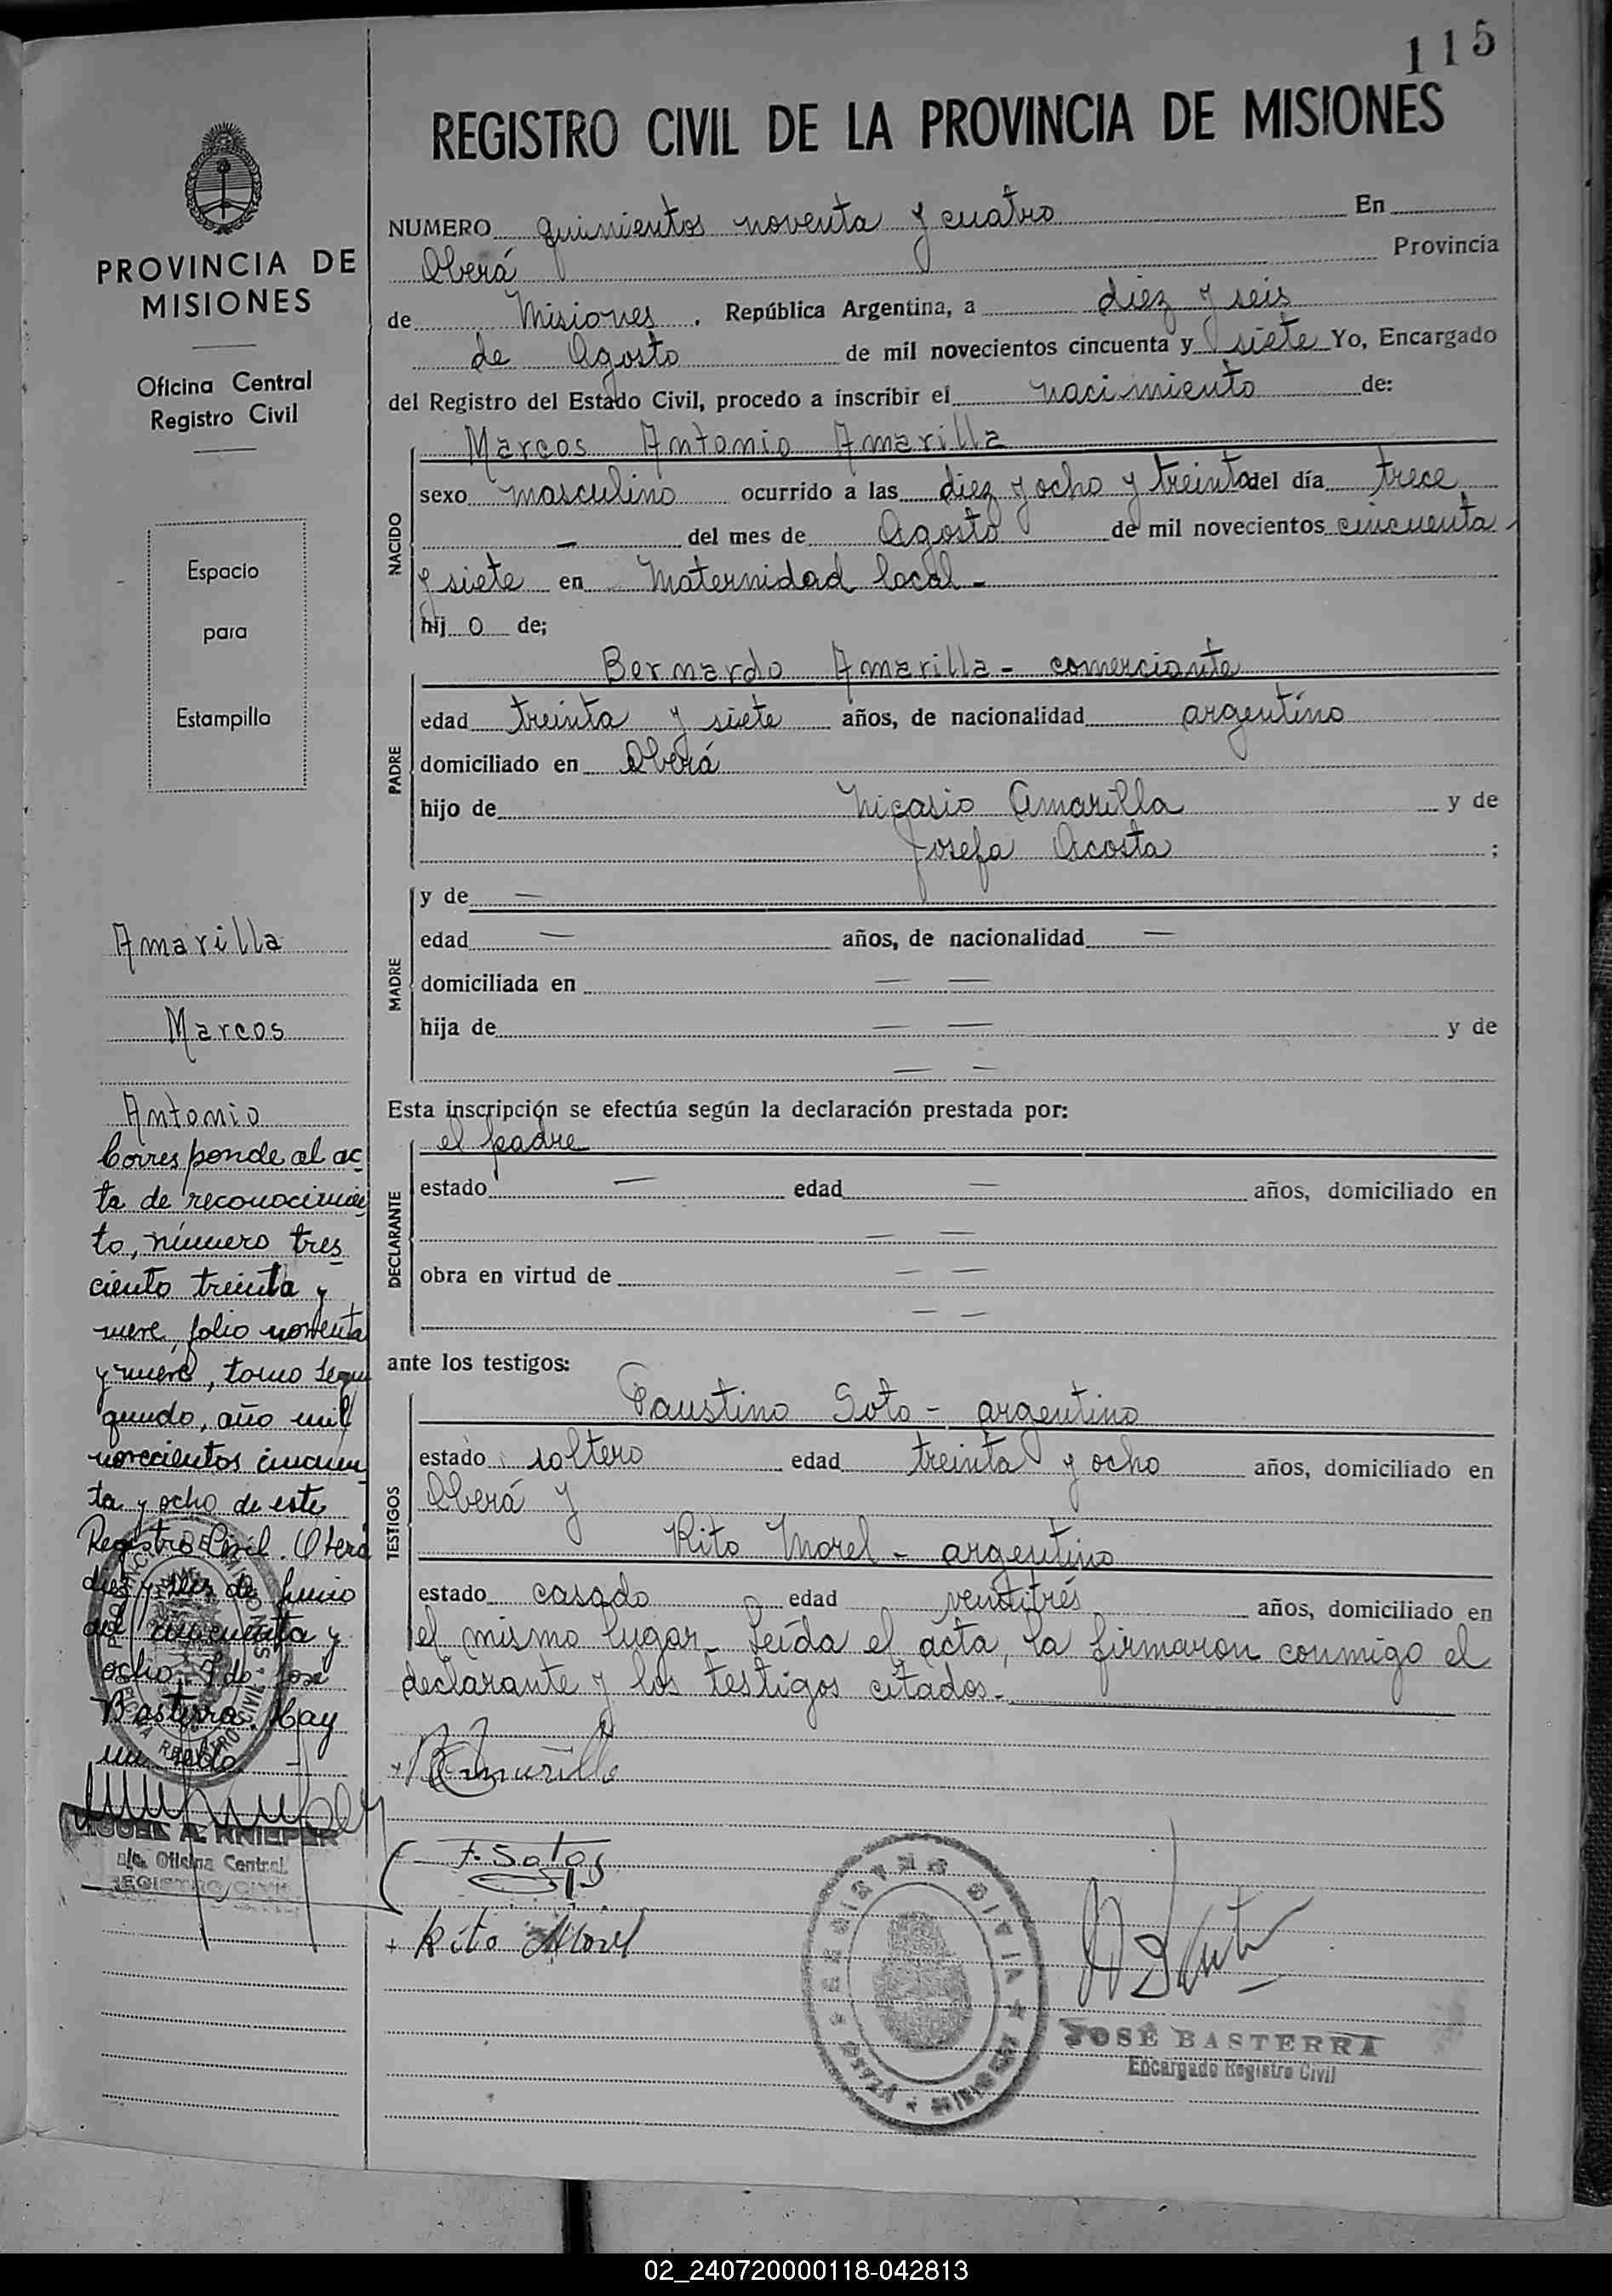 115
REGISTRO CIVIL DE LA PROVINCIA DE MISIONES
PROVINCIA DE
MISIONES
Oficina Central
Registro Civil
Espacio
para
Estampilla
NUMERO quinientos noventa y cuatro En
Oberá Provincia
de Misiones, República Argentina, a diez y seis
de Agosto de mil novecientos cincuenta y siete Yo, Encargado
del Registro del Estado Civil, procedo a inscribir el nacimiento de:
NACIDO
Marcos Antonio Amarilla
sexo masculino ocurrido a las diez y ocho y treinta del día trece
— del mes de Agosto de mil novecientos cincuenta
y siete en Maternidad local -
hijo de;
PADRE
Bernardo Amarilla - comerciante
edad treinta y siete años, de nacionalidad argentino
domiciliado en Oberá
hijo de Nicasio Amarilla y de
Josefa Acosta ;
MADRE
y de —
edad — años, de nacionalidad —
domiciliada en — —
hija de — — y de
— —
Esta inscripción se efectúa según la declaración prestada por:
DECLARANTE
el padre
estado — edad — años, domiciliado en
— —
obra en virtud de — —
— —
ante los testigos:
TESTIGOS
Faustino Soto - argentino
estado soltero edad treinta y ocho años, domiciliado en
Oberá y
Rito Morel - argentino
estado casado edad ventitrés años, domiciliado en
el mismo lugar - Leída el acta, la firmaron conmigo el
declarante y los testigos citados -
Amarilla
F. Soto
Rito Morel
JOSÉ BASTERRA
Encargado Registro Civil
Amarilla
Marcos
Antonio
Corresponde al ac
ta de reconocimien
to, número tres
ciento treinta y
nueve, folio noventa
y nueve, tomo segu
gundo, año mil
novecientos cincuen
ta y ocho de este
Registro Civil. Oberá
diez y seis de Junio
del cincuenta y
ocho. Fdo. José
Basterra. Hay
un sello.
MIGUEL A. KNIEPER
a/c. Oficina Central
REGISTRO CIVIL
02_240720000118-042813